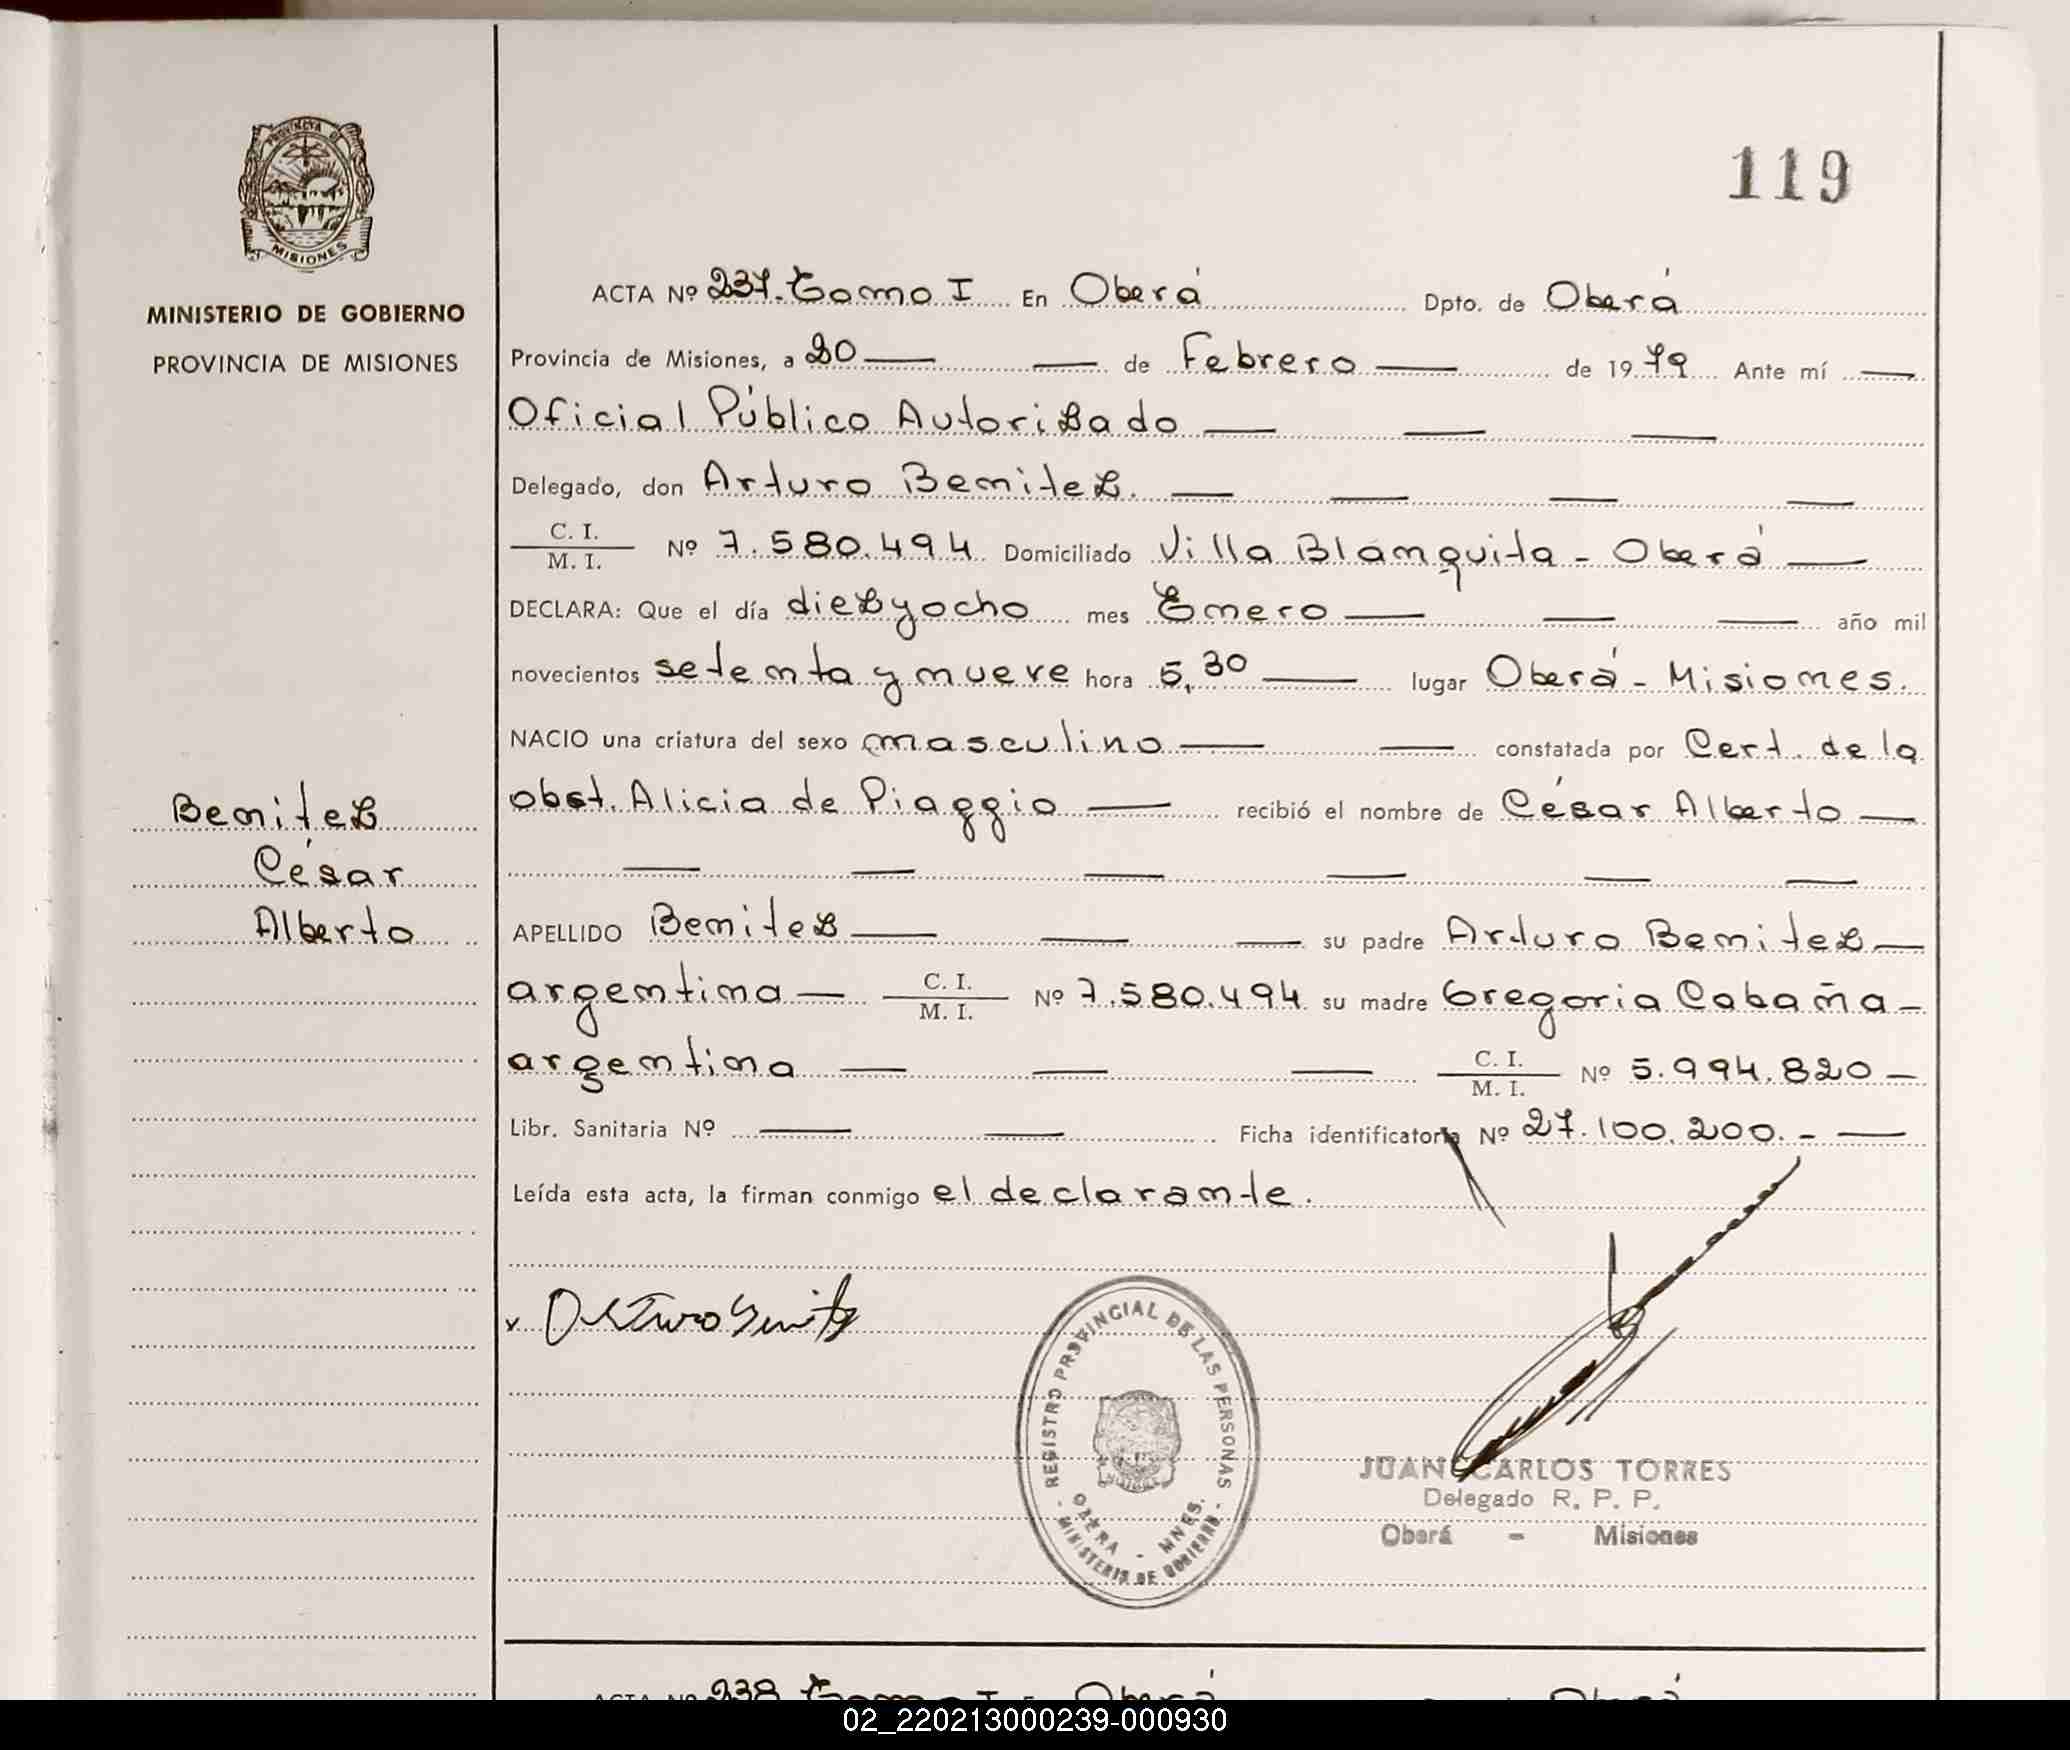 119
PROVINCIA DE
MISIONES
MINISTERIO DE GOBIERNO
PROVINCIA DE MISIONES
ACTA Nº 237. Tomo I En Oberá Dpto. de Oberá
Provincia de Misiones, a 20 — — de Febrero — de 1979 Ante mí —
Oficial Público Autorizado — — —
Delegado, don Arturo Benitez. — — — —
C. I. / M. I. Nº 7.580.494 Domiciliado Villa Blanquita - Oberá —
DECLARA: Que el día diezyocho mes Enero — — — año mil
novecientos setenta y nueve hora 5,30 — lugar Oberá - Misiones.
NACIO una criatura del sexo masculino — — constatada por Cert. de la
obst. Alicia de Piaggio — recibió el nombre de César Alberto —
— — — — — —
Benitez
César
Alberto
APELLIDO Benitez — — — su padre Arturo Benitez —
argentina — C. I. / M. I. Nº 7.580.494 su madre Gregoria Cabaña -
argentina — — — C. I. / M. I. Nº 5.994.820 -
Libr. Sanitaria Nº — — Ficha identificatoria Nº 27.100.200. - —
Leída esta acta, la firman conmigo el declarante.
x Arturo Benitez
REGISTRO PROVINCIAL DE LAS PERSONAS
OBERA - MNES.
- MINISTERIO DE GOBIERNO -
JUAN CARLOS TORRES
Delegado R. P. P.
Oberá - Misiones
ACTA Nº 238 Tomo I En Oberá Oberá
02_220213000239-000930